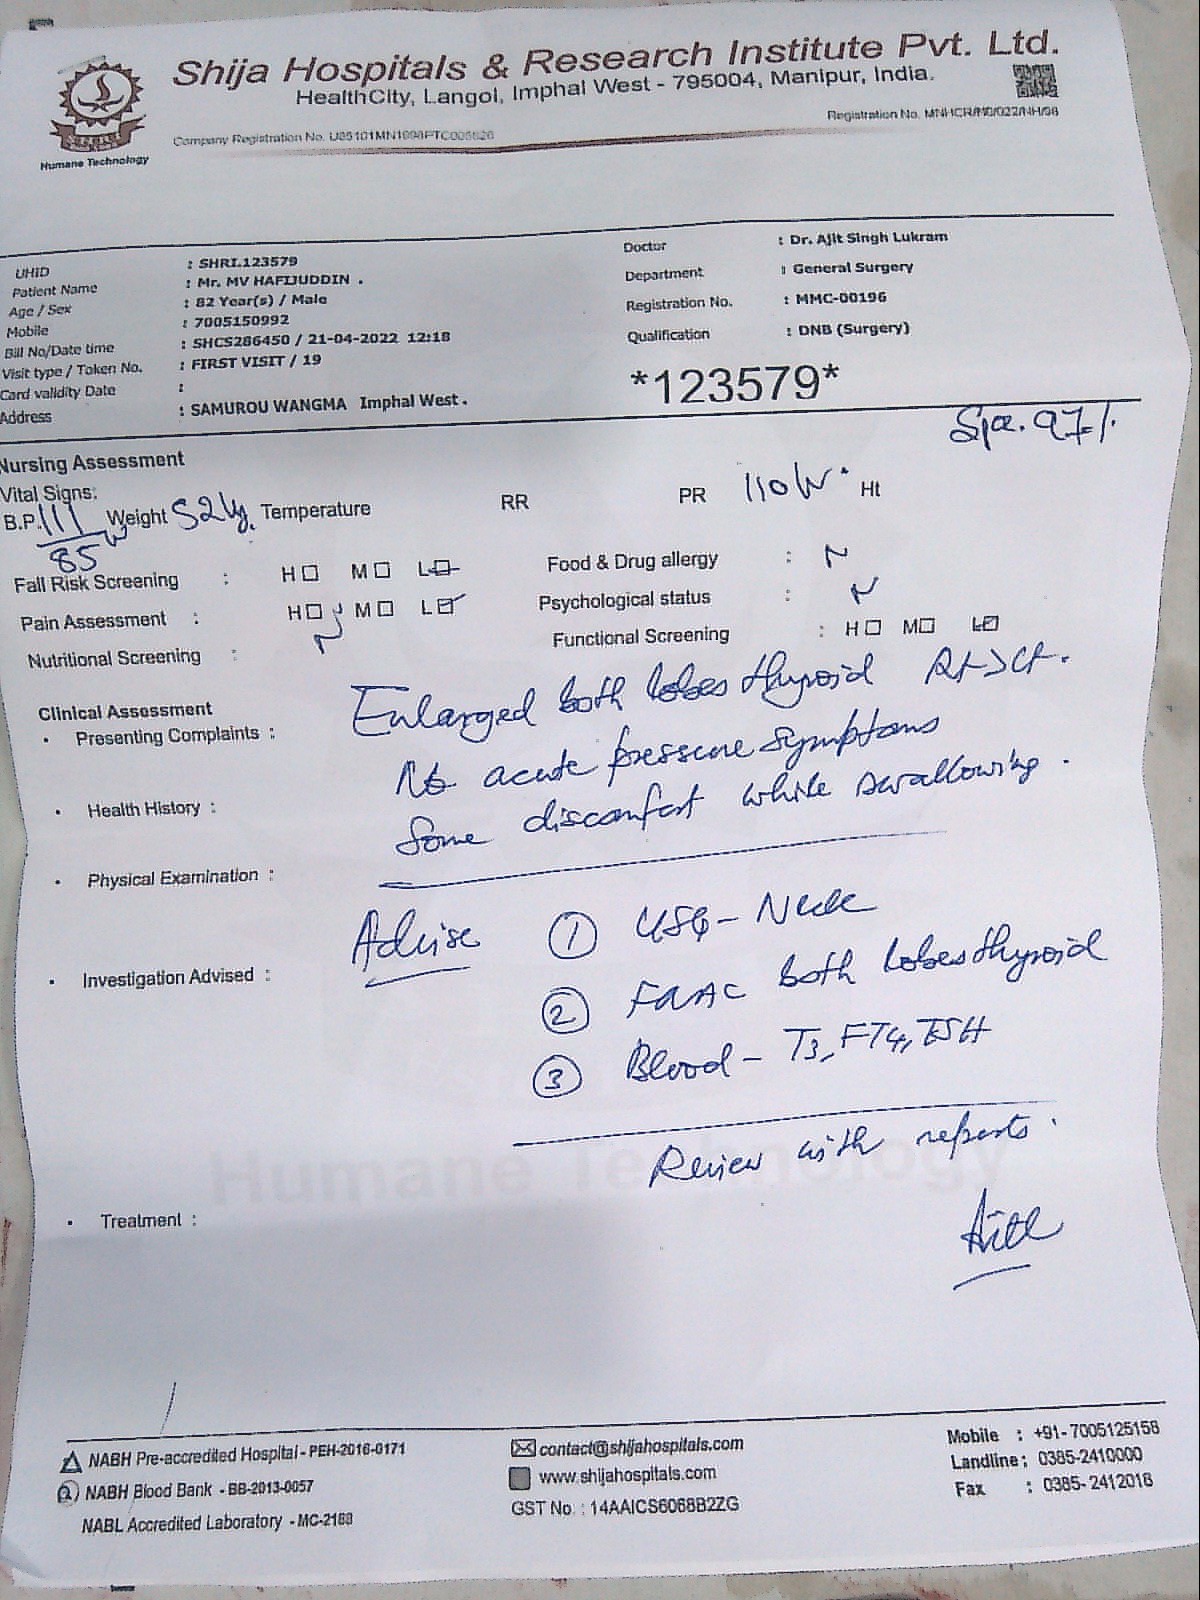 Shija Hospitals & Research Institute Pvt. Ltd.
HealthCity, Langol, Imphal West - 795004, Manipur, India.
Registration No. MNHCR/M0/022/NH/98
Company Registration No.
Humane Technology
UHID : SHRI.123579
Patient Name : Mr. MV HAFIJUDDIN .
Age / Sex : 82 Year(s) / Male
Mobile : 7005150992
Bill No/Date time : SHCS286450 / 21-04-2022 12:18
Visit type / Token No. : FIRST VISIT / 19
Card validity Date :
Address : SAMUROU WANGMA Imphal West .
Doctor : Dr. Ajit Singh Lukram
Department : General Surgery
Registration No. : MMC-00196
Qualification : DNB (Surgery)
*123579*
97%
Nursing Assessment
Vital Signs:
B.P. 111/85 Weight 52kg. Temperature RR PR 110 Ht
Fall Risk Screening : H M L Food & Drug allergy : N
Pain Assessment : H M L Psychological status : N
Nutritional Screening : N Functional Screening : H M L
Clinical Assessment
Enlarged both lobes thyroid Rt>Lt.
• Presenting Complaints :
No acute pressure symptoms
• Health History :
Some discomfort while swallowing.
• Physical Examination :
Advise ① USG - Neck
• Investigation Advised :
② FNAC both lobes thyroid
③ Blood - T3, FT4, TSH
Review with reports.
Humane Technology
• Treatment :
NABH Pre-accredited Hospital - PEH-2016-0171
NABH Blood Bank - BB-2013-0057
NABL Accredited Laboratory - MC-2188
contact@shijahospitals.com
www.shijahospitals.com
GST No. : 14AAICS6068B2ZG
Mobile : +91- 7005125158
Landline : 0385-2410000
Fax : 0385- 2412018